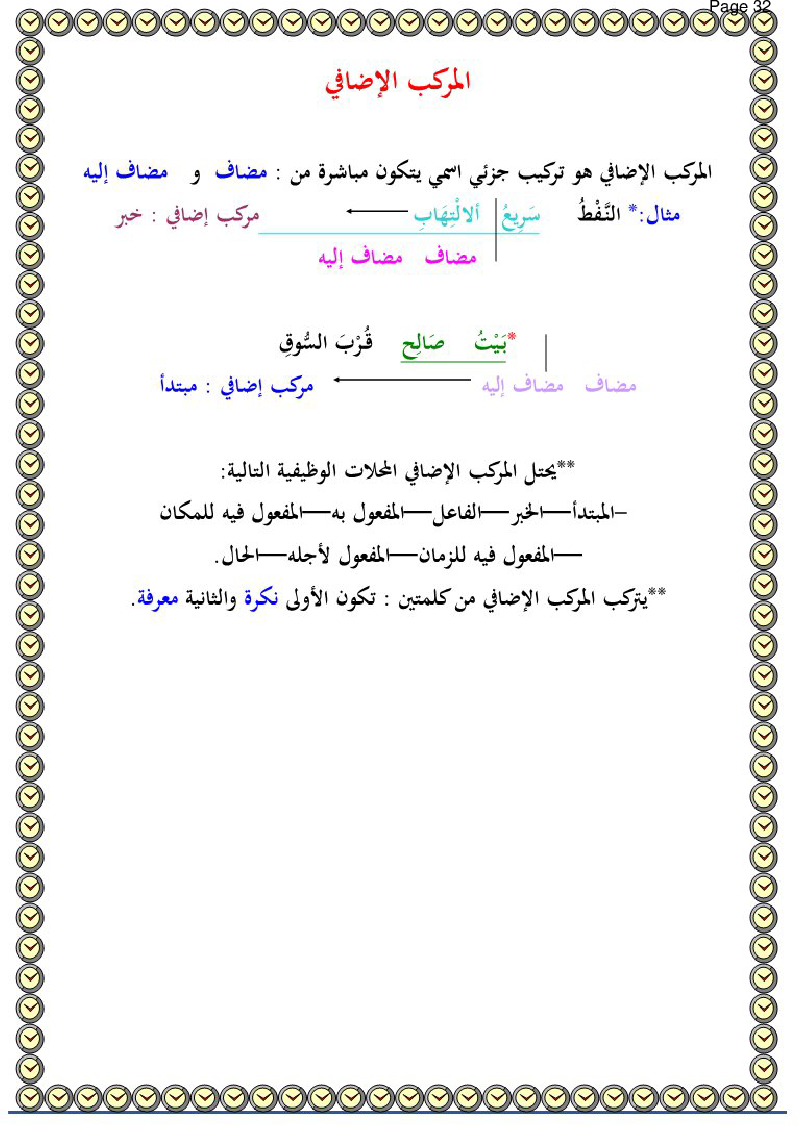 Page 32
المركب الإضافي
المركب الإضافي هو تركيب جزئي اسمي يتكون مباشرة من : مضاف و مضاف إليه
مثال:* النَّفْطُ سَرِيعُ ألالْتِهَابِ مركب إضافي : خبر
مضاف مضاف إليه
*بَيْتُ صَالِح قُرْبَ السُّوقِ
مضاف مضاف إليه مركب إضافي : مبتدأ
**يحتل المركب الإضافي المحلات الوظيفية التالية:
-المبتدأ—الخبر—الفاعل—المفعول به—المفعول فيه للمكان
—المفعول فيه للزمان—المفعول لأجله—الحال.
**يتركب المركب الإضافي من كلمتين : تكون الأولى نكرة والثانية معرفة.